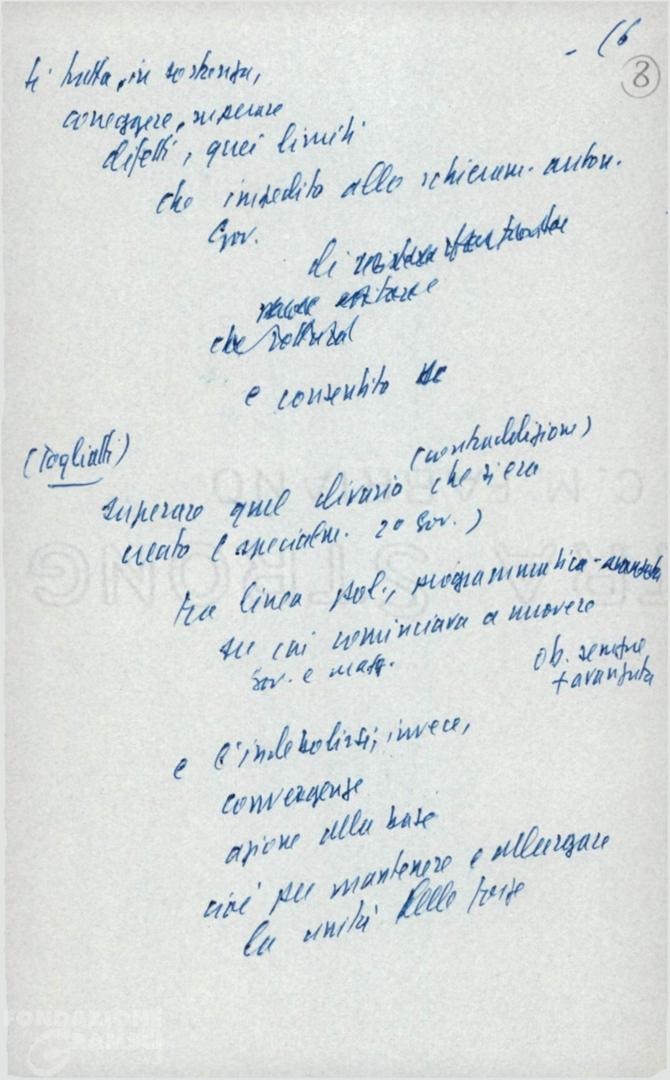 - 16
8
si tratta, in sostanza,
correggere, superare
difetti, quei limiti
che impedito allo schieram. auton.
Gov.
di
che
e consentito
(Togliatti)
superare quel divario (contraddizione) che si era
creato (specialm. 2º Gov.)
tra linea pol., programmatica - avanzata
su cui cominciava a muovere
Gov. e magg.
ob. sempre
+ avanzata
e l'indebolirsi, invece,
convergenze
azione alla base
cioè per mantenere e allargare
la unità delle forze
C. M. FABRIANO
EXTRA STRONG
FONDAZIONE
GRAMSCI